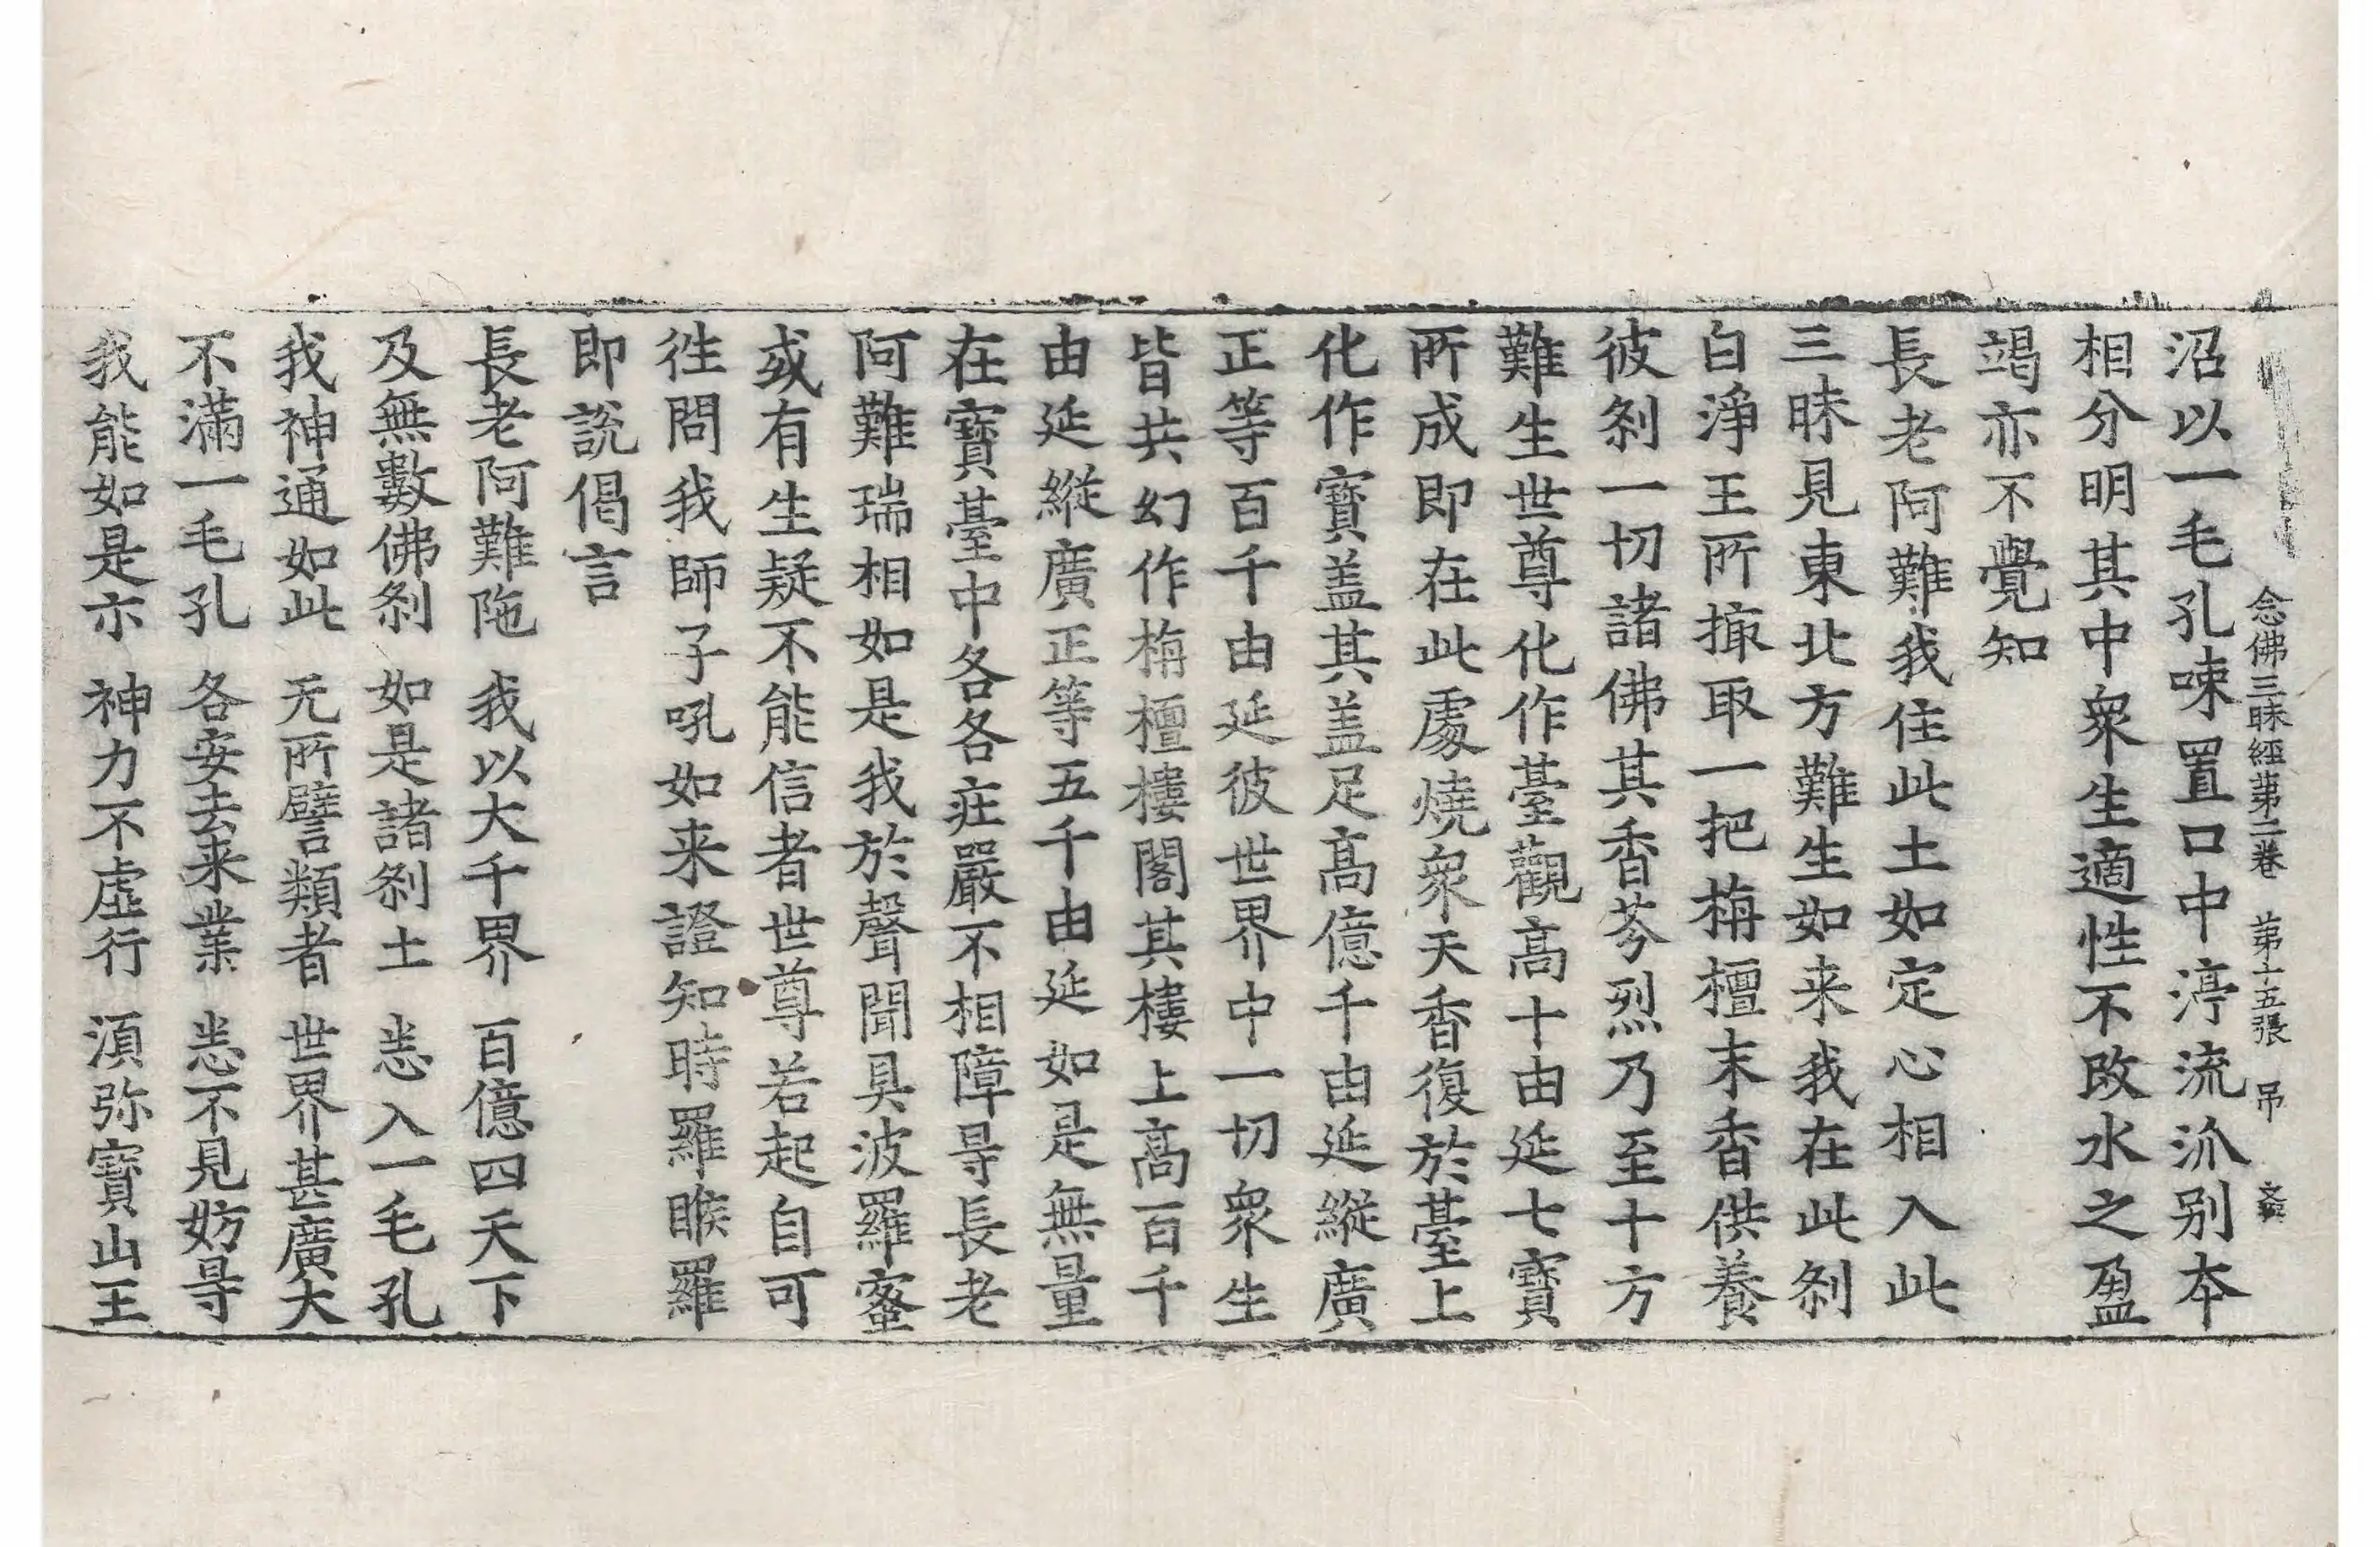 念佛三昧經第二卷 第十五張 吊
沼以一毛孔㖨置口中渟流泒别夲
相分明其中衆生適性不改水之盈
竭亦不覺知
長老阿難我住此土如定心相入此
三昧見東北方難生如来我在此刹
白淨王所㨗取一把栴檀末香供養
彼刹一切諸佛其香芬烈乃至十方
難生世尊化作臺觀高十由延七寶
所成即在此處燒衆天香復於臺上
化作寶盖其盖足高億千由延縱廣
正等百千由延彼世界中一切衆生
皆共幻作栴檀樓閣其樓上高百千
由延縱廣正等五千由延如是無量
在寶臺中各各莊嚴不相障㝵長老
阿難瑞相如是我於聲聞具波羅蜜
或有生疑不能信者世尊若起自可
徃問我師子吼如来證知時羅睺羅
即說偈言
長老阿難陁 我以大千界 百億四天下
及無數佛刹 如是諸刹土 恙入一毛孔
我神通如此 无所譬類者 世界甚廣大
不滿一毛孔 各安去来業 恙不見妨㝵
我能如是亦 神力不虛行 湏弥寶山王